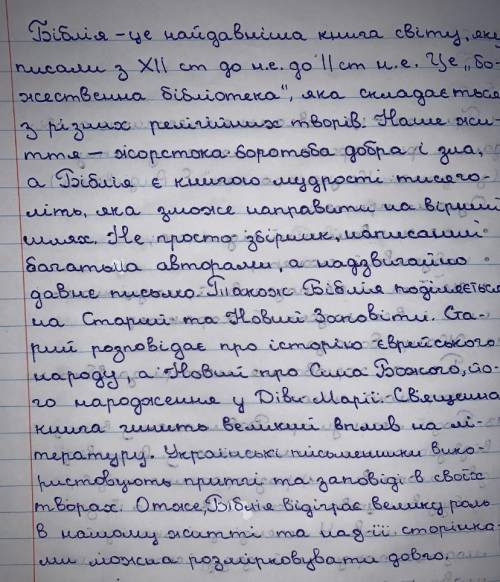 Біблія - це найдавніша книга світу, яку
писали з XII ст до н.е. до II ст н.е. Це „Бо-
жественна бібліотека“, яка складається
з різних релігійних творів. Наше жи-
ття – жорстока боротьба добра і зла,
а Біблія є книгою мудрості тисячо-
літь, яка зможе направити на вірний
шлях. Не просто збірник, написаний
багатьма авторами, а надзвичайно
давнє письмо. Також Біблія поділяється
на Старий та Новий Заповіти. Ста-
рий розповідає про історію єврейського
народу, а Новий про Сина Божого, йо-
го народження у Діви Марії. Священна
книга чинить великий вплив на лі-
тературу. Українські письменники вико-
ристовують притчі та заповіді в своїх
творах. Отже, Біблія відіграє велику роль
в нашому житті та над її сторінка-
ми можна розмірковувати довго.